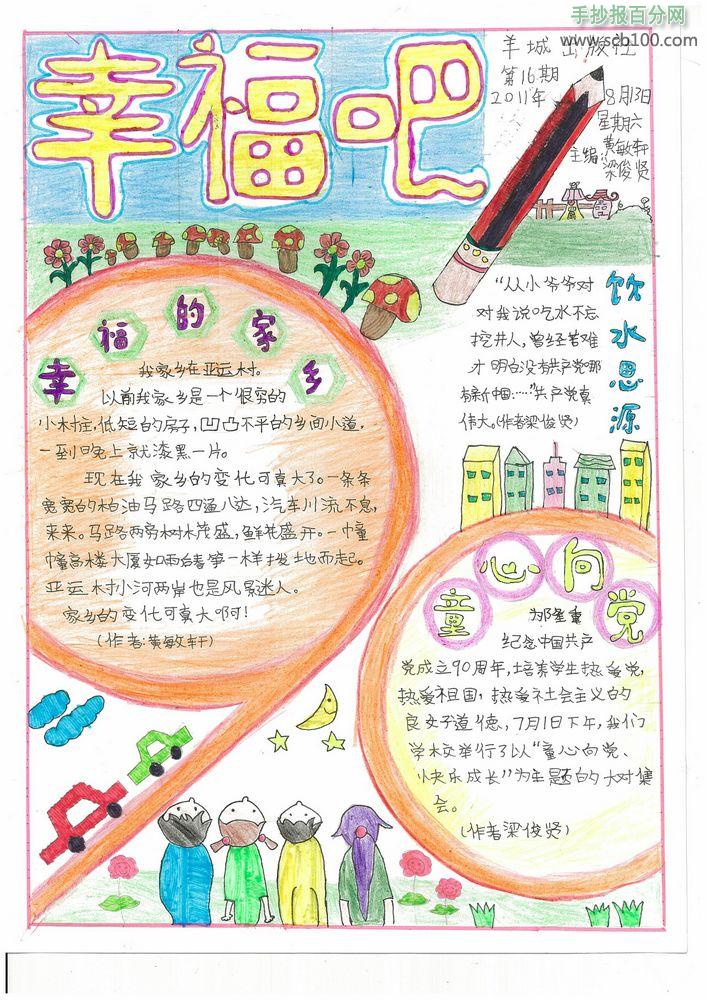 手抄报百分网
www.scb100.com
幸福吧
羊城出版社
第16期
2011年8月13日
星期六
主编:黄敏轩
梁俊贤
幸福的家乡
我家乡在亚运村。
以前我家乡是一个很穷的
小村庄,低短的房子,凹凸不平的乡间小道,
一到晚上就漆黑一片。
现在我家乡的变化可真大了。一条条
宽宽的柏油马路四通八达,汽车川流不息,
来来。马路两旁树木茂盛,鲜花盛开。一幢
幢高楼大厦如雨后春笋一样拔地而起。
亚运村小河两岸也是风景迷人。
家乡的变化可真大啊!
(作者:黄敏轩)
饮水思源
“从小爷爷对
对我说吃水不忘
挖井人,曾经苦难
才明白没有共产党哪
有新中国……”共产党真
伟大。(作者梁俊贤)
童心向党
为隆重
纪念中国共产
党成立90周年,培养学生热爱党,
热爱祖国,热爱社会主义的
良好道德,7月1日下午,我们
学校举行了以“童心向党、
快乐成长”为主题的大对集
会。
(作者梁俊贤)